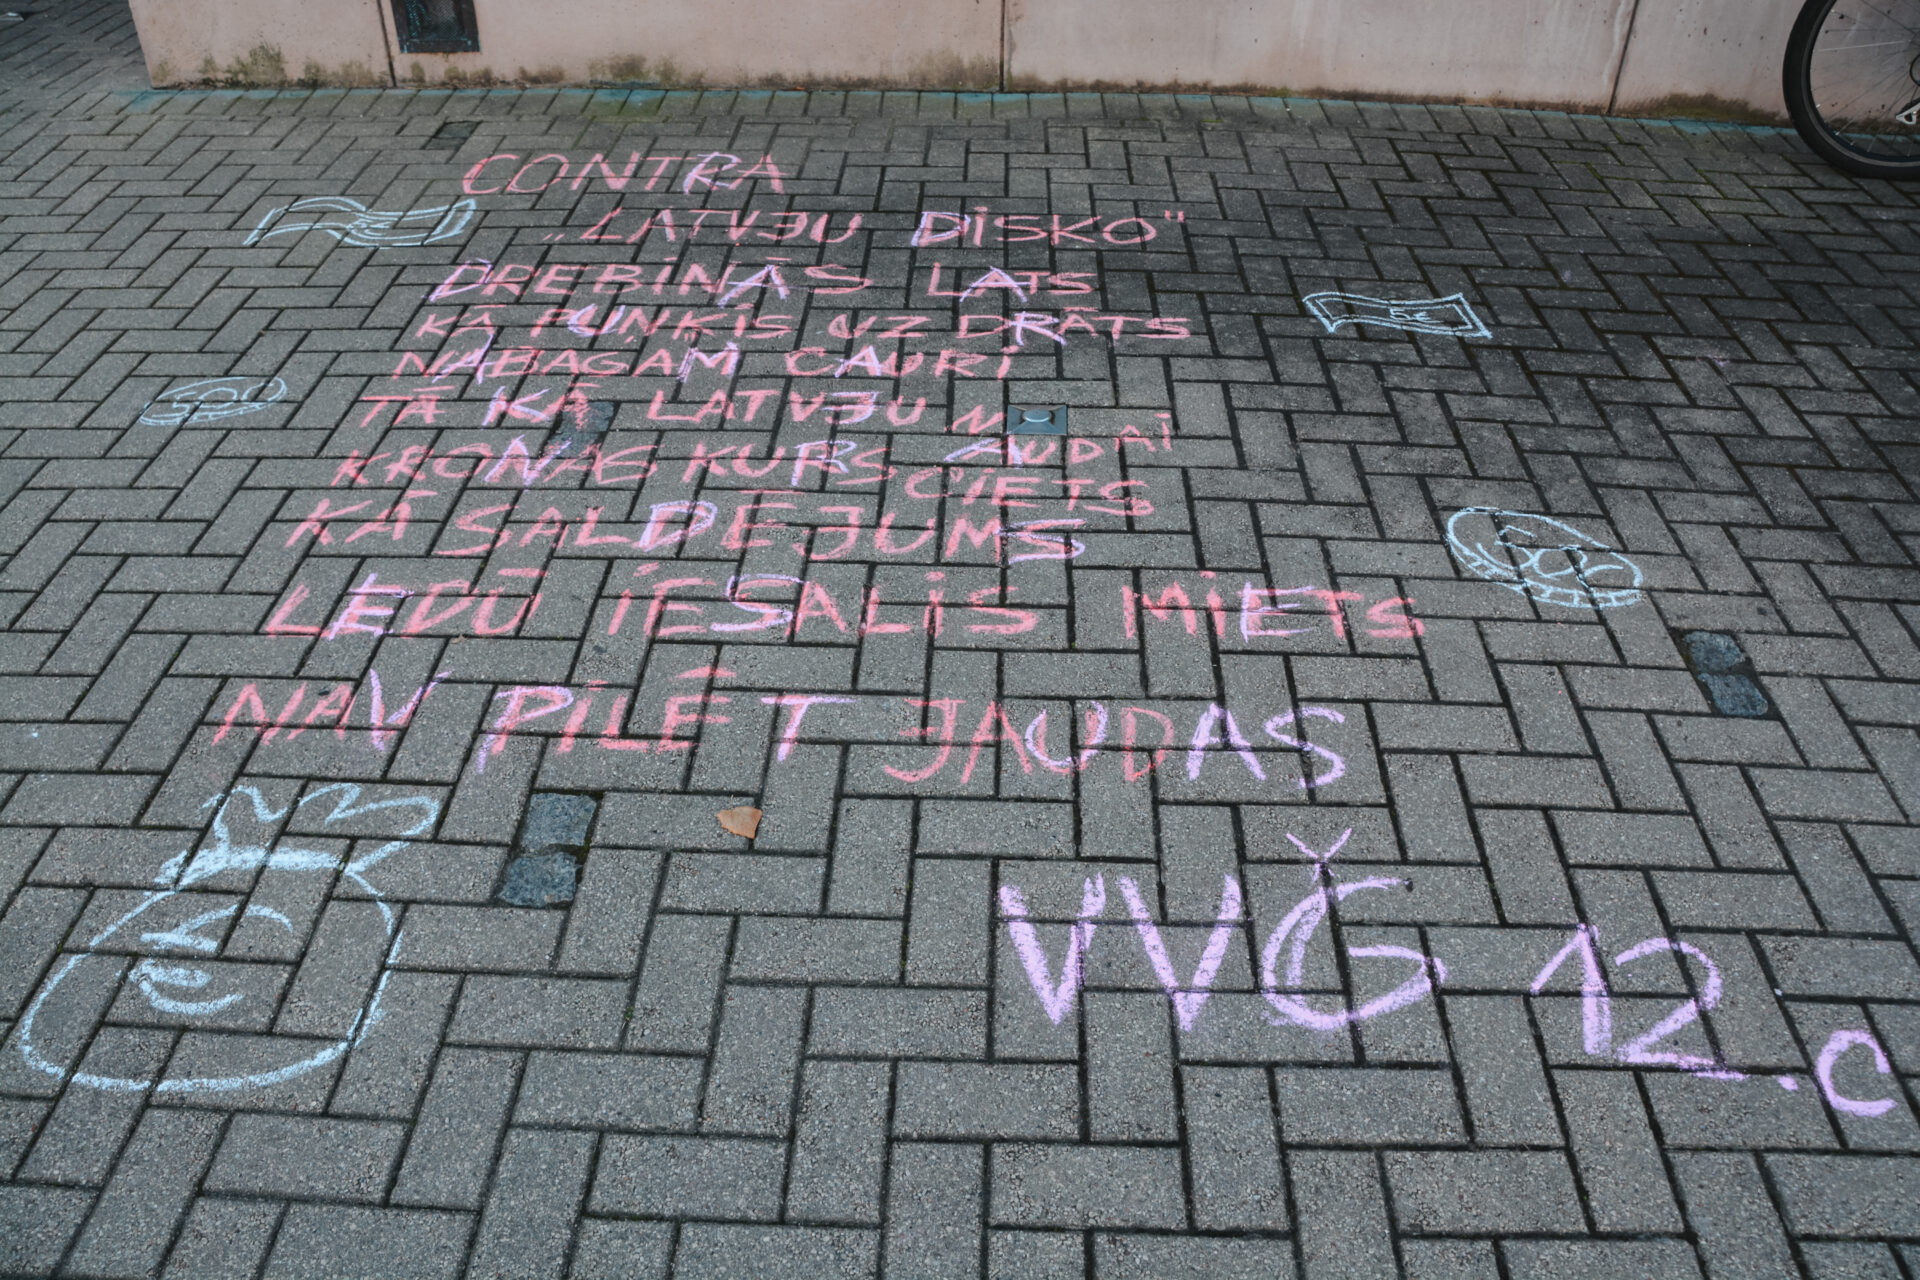 CONTRA
„LATVJU DISKO"
DREBINĀS LATS
KĀ PUŅĶIS UZ DRĀTS
NABAGAM CAURI
TĀ KĀ LATVJU NAUDAI
KRONAS KURSS CIETS
KĀ SALDĒJUMS
LEDŪ IESALIS MIETS
NAV PILĒT JAUDAS
VVĢ 12.c